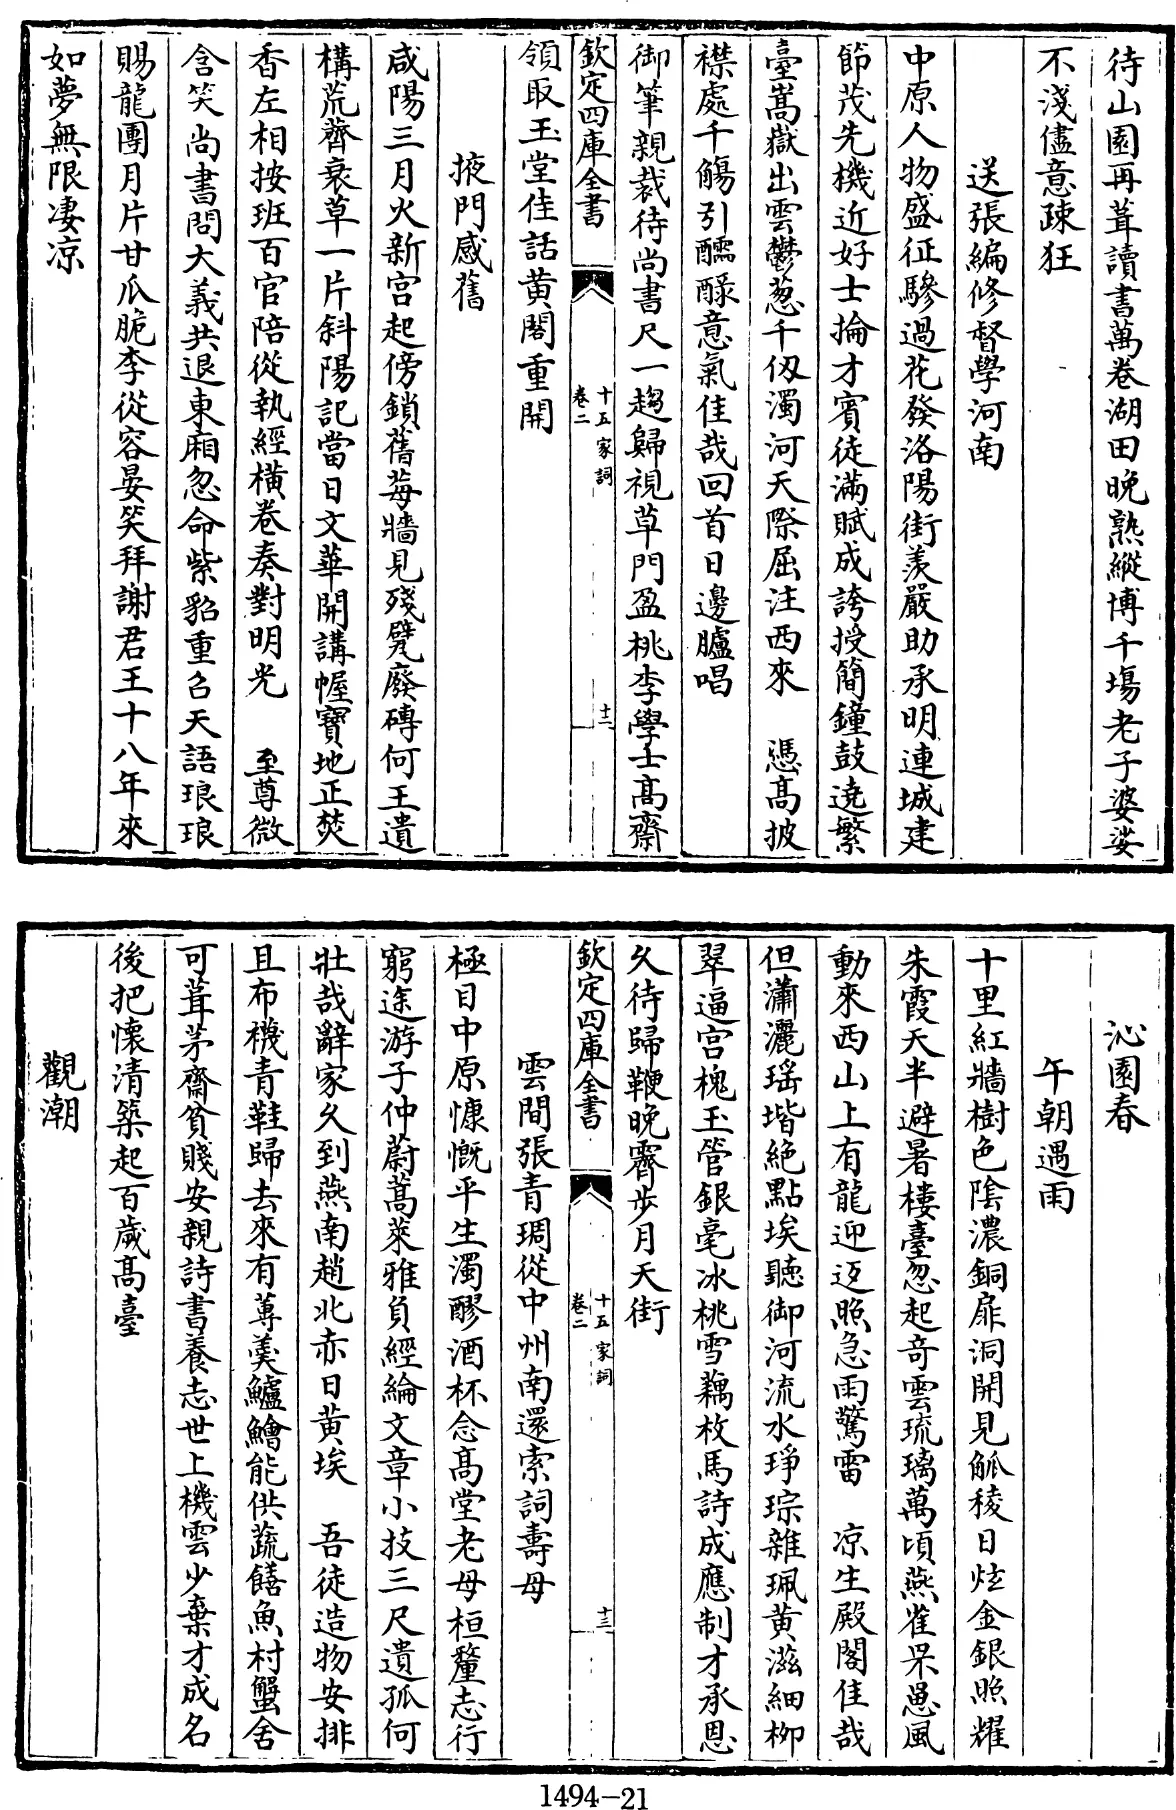 待山園再葺讀書萬卷湖田晚熟縱博千場老子婆娑
不淺儘意疎狂
送張編修督學河南
中原人物盛征驂過花發洛陽街羨嚴助承明連城建
節茂先機近好士掄才賓徒滿賦成誇授簡鐘鼓遶繁
臺嵩嶽出雲鬱葱千仭濁河天際屈注西來　憑高披
襟處千觴引醽醁意氣佳哉回首日邊臚唱
御筆親裁待尚書尺一趨歸視草門盈桃李學士高齋
欽定四庫全書　十五家詞　卷二　十二
領取玉堂佳話黄閣重開
掖門感舊
咸陽三月火新宫起傍鎖舊莓牆見殘甓廢磚何王遺
構荒薺衰草一片斜陽記當日文華開講幄寶地正焚
香左相按班百官陪從執經橫卷奏對明光　至尊微
含笑尚書問大義共退東廂忽命紫貂重召天語琅琅
賜龍團月片甘瓜脆李從容晏笑拜謝君王十八年來
如夢無限凄凉
沁園春
午朝遇雨
十里紅牆樹色陰濃銅扉洞開見觚稜日炫金銀照耀
朱霞天半避暑樓臺忽起奇雲琉璃萬頃燕雀罘罳風
動來西山上有龍迎返照急雨驚雷　凉生殿閣佳哉
但瀟灑瑶堦絶點埃聽御河流水琤琮雜珮黄滋細栁
翠逼宫槐玉管銀毫冰桃雪藕枚馬詩成應制才承恩
久待歸鞭晚霽步月天街
欽定四庫全書　十五家詞　卷二　十三
雲間張青琱從中州南還索詞壽母
極目中原慷慨平生濁醪酒杯念高堂老母桓釐志行
窮途游子仲蔚蒿萊雅負經綸文章小技三尺遺孤何
壯哉辭家久到燕南趙北赤日黄埃　吾徒造物安排
且布襪青鞋歸去來有蓴羮鱸鱠能供蔬饍魚村蟹舍
可葺茅齋貧賤安親詩書養志世上機雲少棄才成名
後把懷清築起百歲高臺
觀潮
1494-21